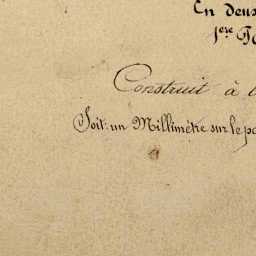 En deux
1ere
Construit à l
Soit un Millimètre sur le